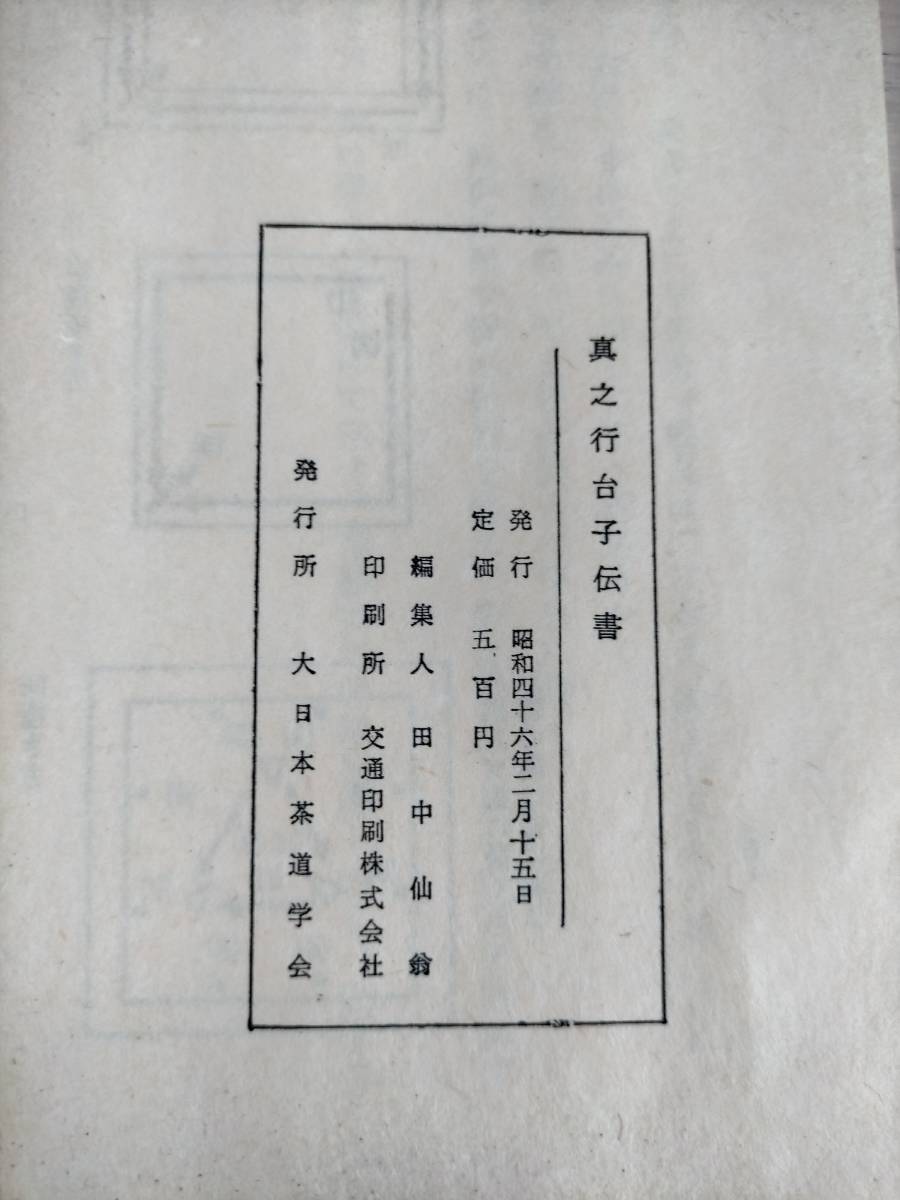 真之行台子伝書
発行 昭和四十六年二月十五日
定価 五百円
編集人 田中仙翁
印刷所 交通印刷株式会社
発行所 大日本茶道学会